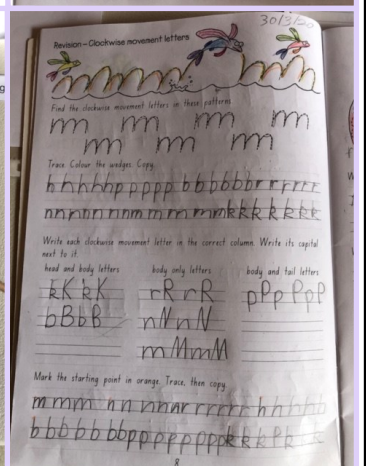 30/3/20
Revision – Clockwise movement letters
Find the clockwise movement letters in these patterns.
m m m m
m m m
Trace. Colour the wedges. Copy.
h h h h h p p p p p b b b b b b r r r r r r
n n n n n n n m m m m m m k k k k k k k
Write each clockwise movement letter in the correct column. Write its capital
next to it.
head and body letters body only letters body and tail letters
kK kK rR rR pPp PpP
bBbB nNnN
mMmM
Mark the starting point in orange. Trace, then copy.
m m m n n n n n r r r r r r h h h h b
b b b b b b b p p p p p p p p k k k
8